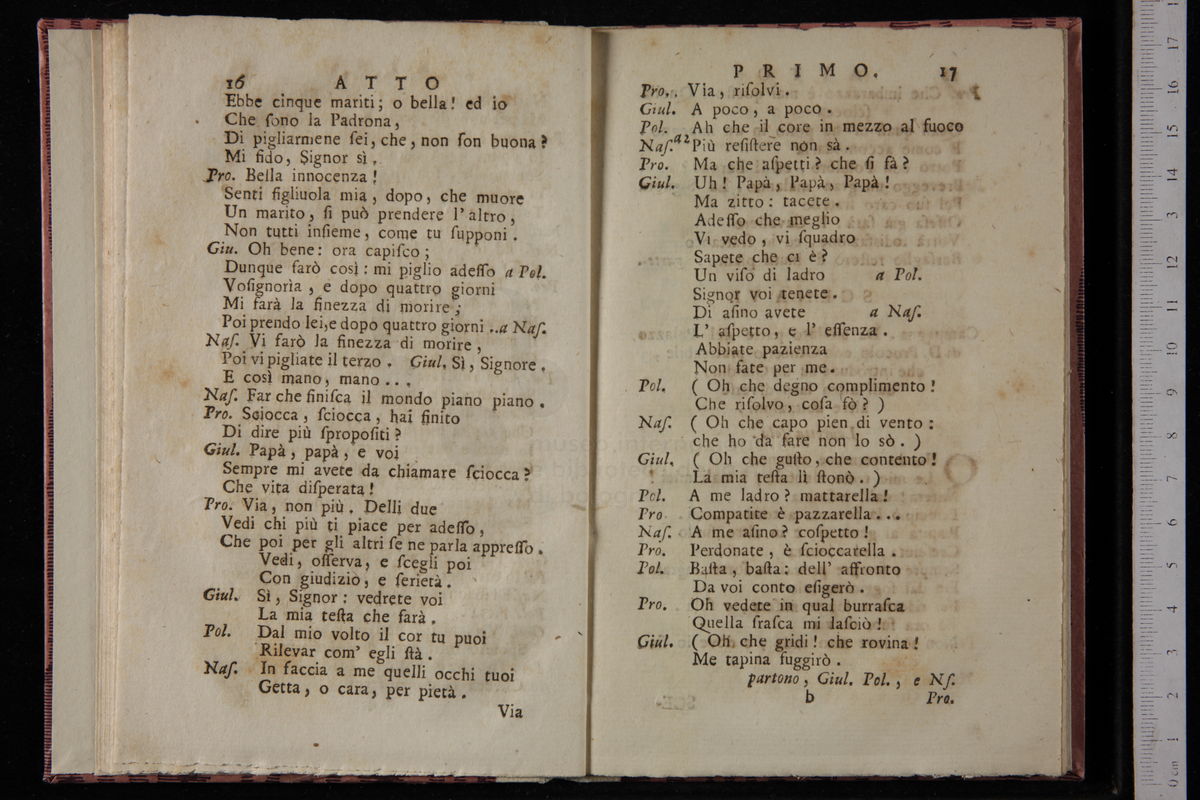 16 ATTO
Ebbe cinque mariti; o bella! ed io
Che ſono la Padrona,
Di pigliarmene ſei, che, non ſon buona?
Mi fido, Signor sì.
Pro. Bella innocenza!
Senti figliuola mia, dopo, che muore
Un marito, ſi può prendere l' altro,
Non tutti inſieme, come tu ſupponi.
Giu. Oh bene: ora capiſco;
Dunque farò così: mi piglio adeſſo a Pol.
Voſignorìa, e dopo quattro giorni
Mi farà la finezza di morire;
Poi prendo lei, e dopo quattro giorni .. a Naſ.
Naſ. Vi farò la finezza di morire,
Poi vi pigliate il terzo. Giul. Sì, Signore.
E così mano, mano...
Naſ. Far che finiſca il mondo piano piano.
Pro. Sciocca, ſciocca, hai finito
Di dire più ſpropoſiti?
Giul. Papà, papà, e voi
Sempre mi avete da chiamare ſciocca?
Che vita diſperata!
Pro. Via, non più. Delli due
Vedi chi più ti piace per adeſſo,
Che poi per gli altri ſe ne parla appreſſo.
Vedi, oſſerva, e ſcegli poi
Con giudizio, e ſerietà.
Giul. Sì, Signor: vedrete voi
La mia teſta che farà.
Pol. Dal mio volto il cor tu puoi
Rilevar com' egli ſtà.
Naſ. In faccia a me quelli occhi tuoi
Getta, o cara, per pietà.
Via
PRIMO. 17
Pro. Via, riſolvi.
Giul. A poco, a poco.
Pol. Ah che il core in mezzo al fuoco
Naſ. a2 Più reſiſtere non sà.
Pro. Ma che aſpetti? che ſi fà?
Giul. Uh! Papà, Papà, Papà!
Ma zitto: tacete.
Adeſſo che meglio
Vi vedo, vi ſquadro
Sapete che ci è?
Un viſo di ladro a Pol.
Signor voi tenete.
Di aſino avete a Naſ.
L' aſpetto, e l' eſſenza.
Abbiate pazienza
Non fate per me.
Pol. ( Oh che degno complimento!
Che riſolvo, coſa fò? )
Naſ. ( Oh che capo pien di vento:
che ho da fare non lo sò. )
Giul. ( Oh che guſto, che contento!
La mia teſta lì ſtonò. )
Pol. A me ladro? mattarella!
Pro. Compatite è pazzarella...
Naſ. A me aſino? coſpetto!
Pro. Perdonate, è ſcioccarella.
Pol. Baſta, baſta: dell' affronto
Da voi conto eſigerò.
Pro. Oh vedete in qual burraſca
Quella fraſca mi laſciò!
Giul. ( Oh che gridi! che rovina!
Me tapina fuggirò.
partono, Giul. Pol., e Nſ.
b Pro.